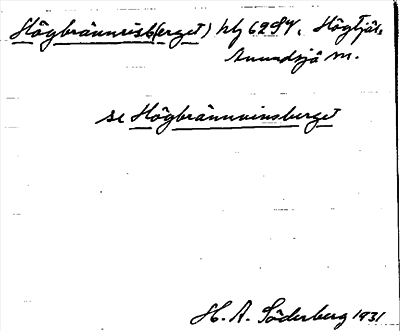 Högbrännrisb(erget) blj 6284. Högtjäl.
Anundsjö m.
se Högbrännvinsberget
H. A. Söderberg 1931